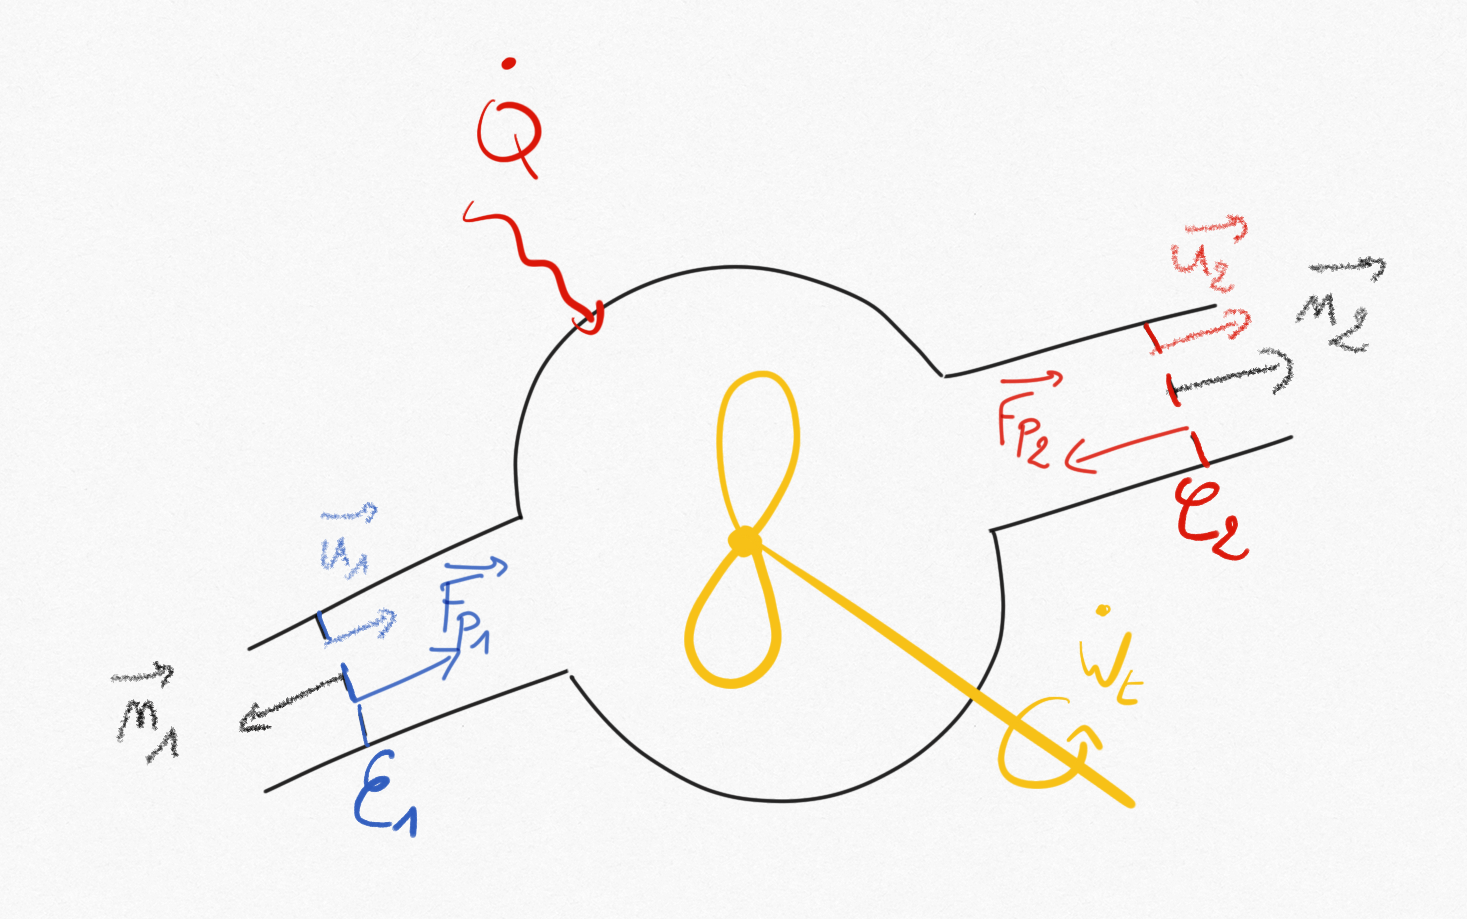 Q̇
u⃗₂
n⃗₂
F⃗p₂
𝒞₂
u⃗₁
F⃗p₁
Ẇt
n⃗₁
𝒞₁